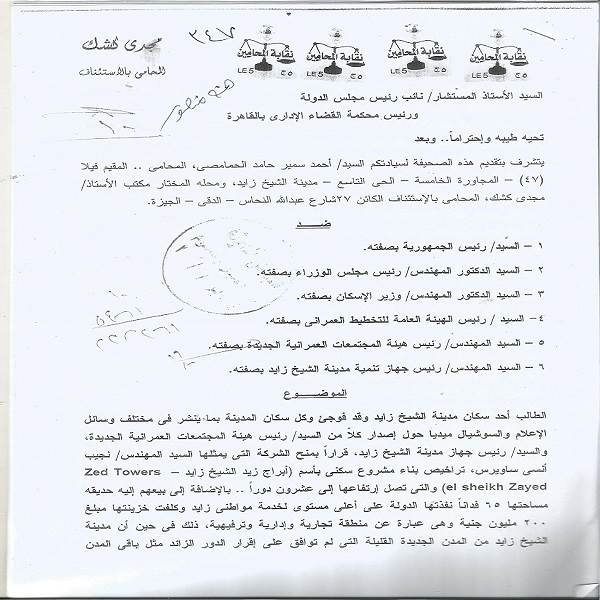 ٣٤٧
نقابة المحامين نقابة المحامين نقابة المحامين نقابة المحامين
LE5 ج٥ LE5 ج٥ LE5 ج٥ LE5 ج٥
مجدى كشك
المحامى بالاستئناف
السيد الأستاذ المستشار/ نائب رئيس مجلس الدولة
ورئيس محكمة القضاء الإدارى بالقاهرة
تحيه طيبه وإحتراماً.. وبعد
يتشرف بتقديم هذه الصحيفة لسيادتكم السيد/ أحمد سمير حامد الحمامصى، المحامى .. المقيم فيلا
(٤٧) – المجاورة الخامسة – الحى التاسع – مدينة الشيخ زايد، ومحله المختار مكتب الأستاذ/
مجدى كشك، المحامى بالإستئناف الكائن ٢٧شارع عبدالله النحاس – الدقى – الجيزة.
ضــد
١ – السيد/ رئيس الجمهورية بصفته.
٢ – السيد الدكتور المهندس/ رئيس مجلس الوزراء بصفته.
٣ – السيد الدكتور المهندس/ وزير الإسكان بصفته.
٤– السيد / رئيس الهيئة العامة للتخطيط العمرانى بصفته.
٥ – السيد المهندس/ رئيس هيئة المجتمعات العمرانية الجديدة بصفته.
٦ – السيد المهندس/ رئيس جهاز تنمية مدينة الشيخ زايد بصفته.
الموضــوع
الطالب أحد سكان مدينة الشيخ زايد وقد فوجئ وكل سكان المدينة بما ينشر فى مختلف وسائل
الإعلام والسوشيال ميديا حول إصدار كلاً من السيد/ رئيس هيئة المجتمعات العمرانية الجديدة،
والسيد/ رئيس جهاز مدينة الشيخ زايد، قراراً بمنح الشركة التى يمثلها السيد المهندس/ نجيب
أنسى ساويرس، تراخيص بناء مشروع سكنى بأسم (أبراج زيد الشيخ زايد – Zed Towers
el sheikh Zayed) والتى تصل إرتفاعها إلى عشرون دوراً .. بالإضافة إلى بيعهم إليه حديقه
مساحتها ٦٥ فداناً نفذتها الدولة على أعلى مستوى لخدمة مواطنى زايد وكلفت خزينتها مبلغ
٢٠٠ مليون جنية وهى عبارة عن منطقة تجارية وإدارية وترفيهية، ذلك فى حين أن مدينة
الشيخ زايد من المدن الجديدة القليلة التى لم توافق على إقرار الدور الزائد مثل باقى المدن